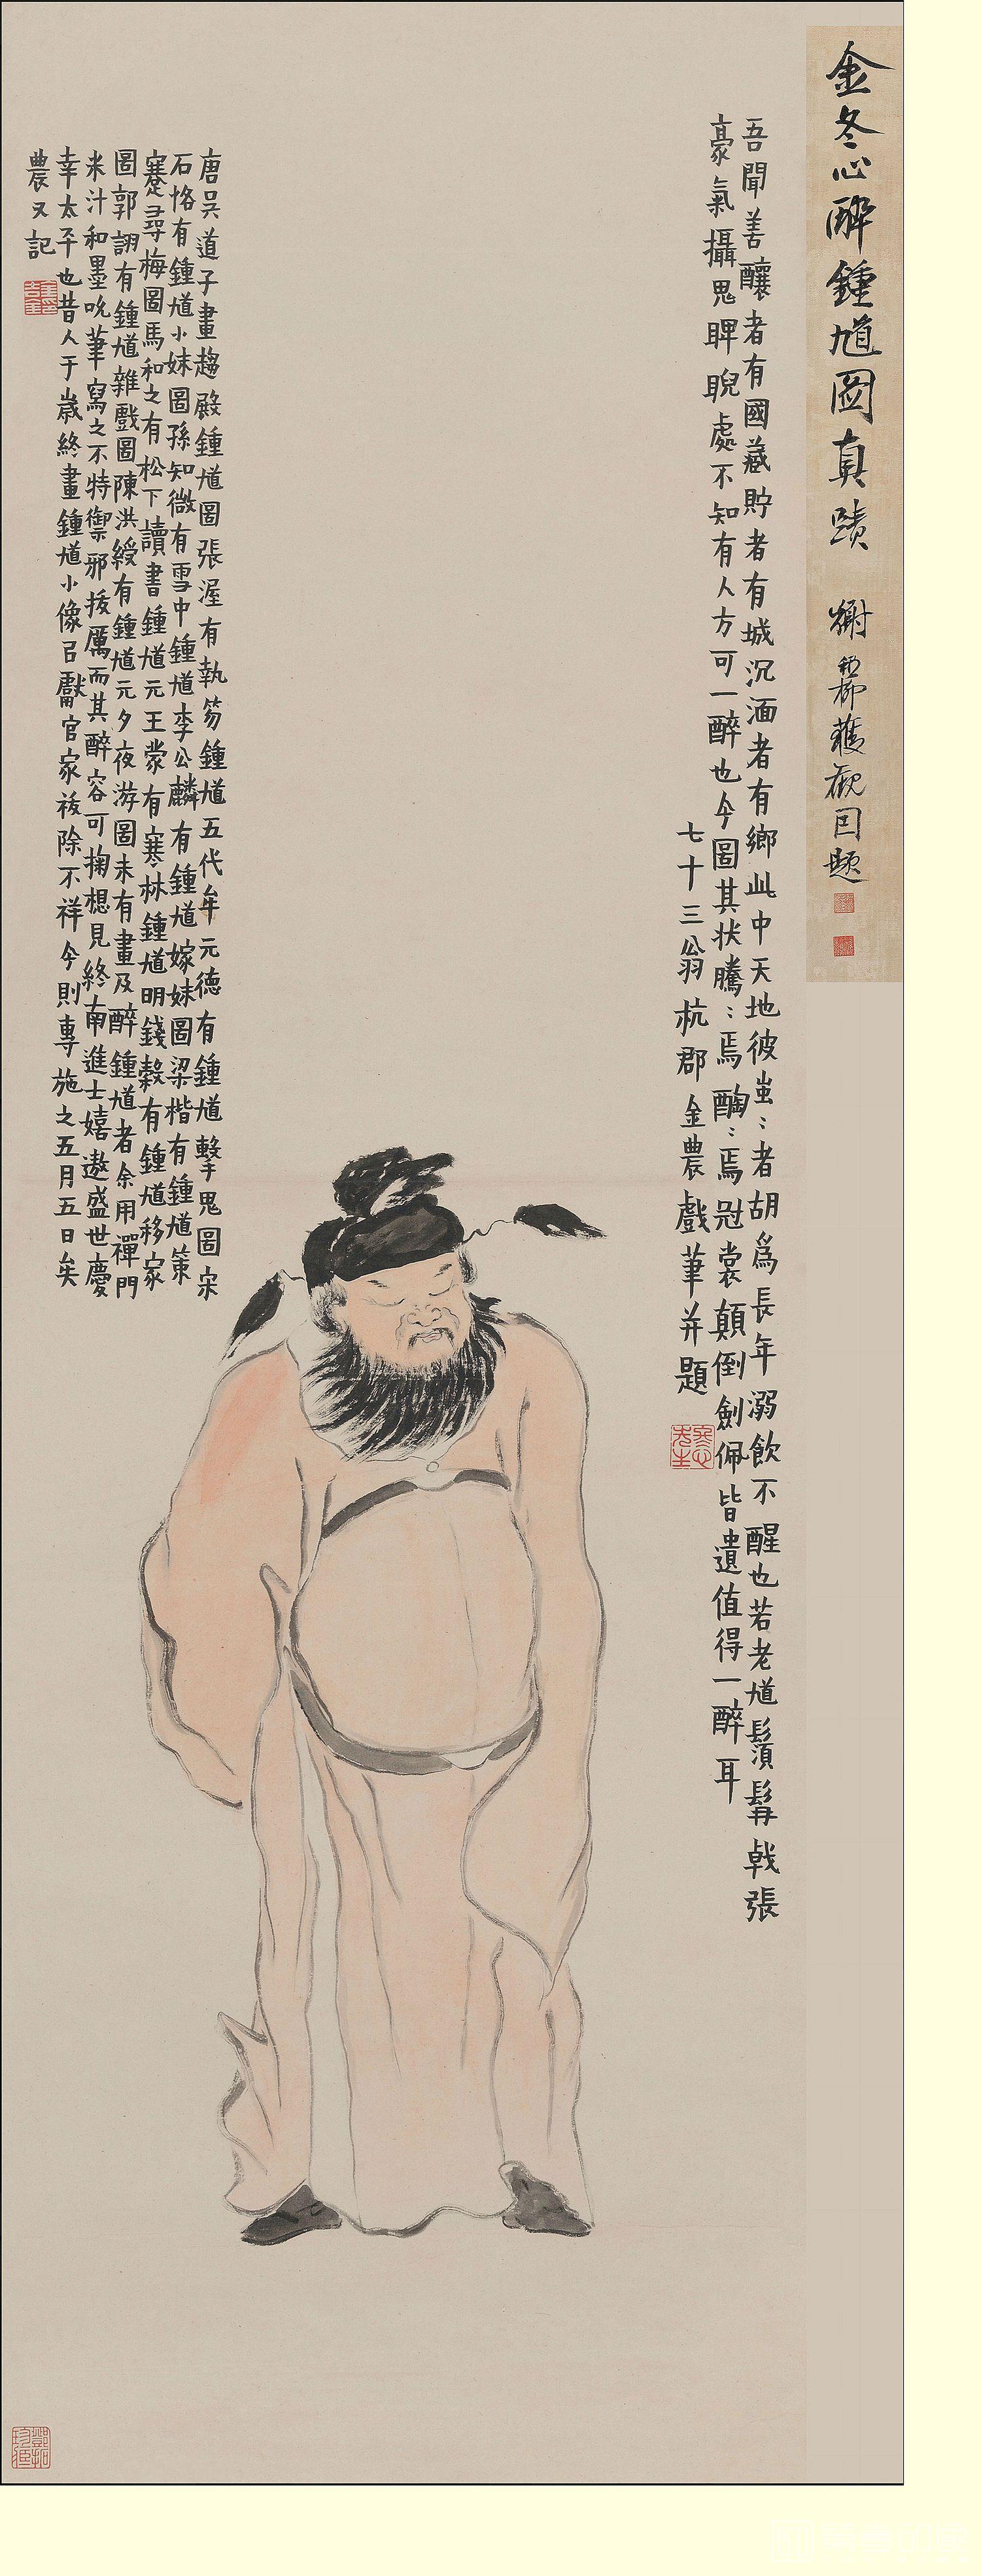 金冬心醉鍾馗圖真蹟
獲觀因題
吾聞善釀者有國藏貯者有城沉湎者有鄉此中天地彼蚩〻者胡爲長年溺飲不醒也若老馗鬚髯戟張
豪氣攝鬼睥睨處不知有人方可一醉也今圖其状騰〻焉醄〻焉冠裳顛倒劍佩皆遺值得一醉耳
七十三翁杭郡金農戲筆并題
冬心先生
唐吳道子畫趨殿鍾馗圖張渥有執笏鍾馗五代牟元德有鍾馗擊鬼圖宋
石恪有鍾馗小妹圖孫知微有雪中鍾馗李公麟有鍾馗嫁妹圖梁楷有鍾馗策
蹇尋梅圖馬和之有松下讀書鍾馗元王蒙有寒林鍾馗明錢穀有鍾馗移家
圖郭詡有鍾馗雜戲圖陳洪綬有鍾馗元夕夜游圖未有畫及醉鍾馗者余用禪門
米汁和墨吮筆寫之不特禦邪拔厲而其醉容可掬想見終南進士嬉遨盛世慶
幸太平也昔人于歲終畫鍾馗小像㠯獻官家祓除不祥今則專施之五月五日矣
農又記